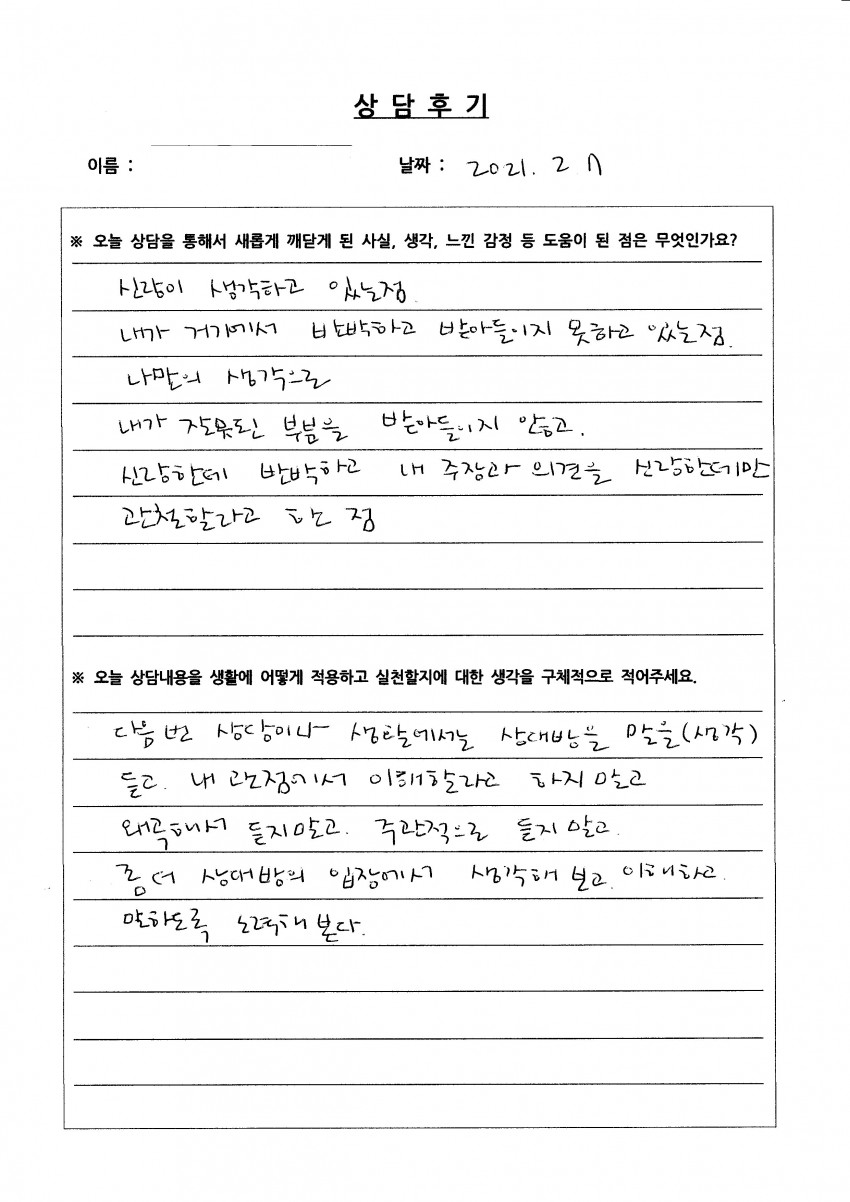 상 담 후 기
이름 :
날짜 : 2021. 2
※ 오늘 상담을 통해서 새롭게 깨닫게 된 사실, 생각, 느낀 감정 등 도움이 된 점은 무엇인가요?
신랑이 생각하고 있는점.
내가 거기에서 반박하고 받아들이지 못하고 있는점.
나만의 생각으로
내가 잘못된 부분을 받아들이지 않고.
신랑한테 반박하고 내 주장과 의견을 신랑한테만
관철할라고 한 점
※ 오늘 상담내용을 생활에 어떻게 적용하고 실천할지에 대한 생각을 구체적으로 적어주세요.
다음 번 상담이나 생활에서는 상대방을 말을(생각)
듣고. 내 관점에서 이해할라고 하지말고
왜곡해서 듣지말고. 주관적으로 듣지 말고.
좀 더 상대방의 입장에서 생각해 보고. 이해하고.
말하도록 노력해 본다.